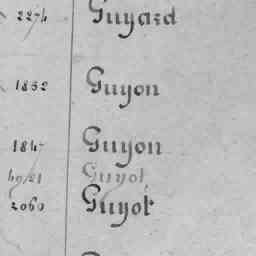 2274 Guyard
1852 Guyon
184- Guyon
Guyot
2060 Guyot